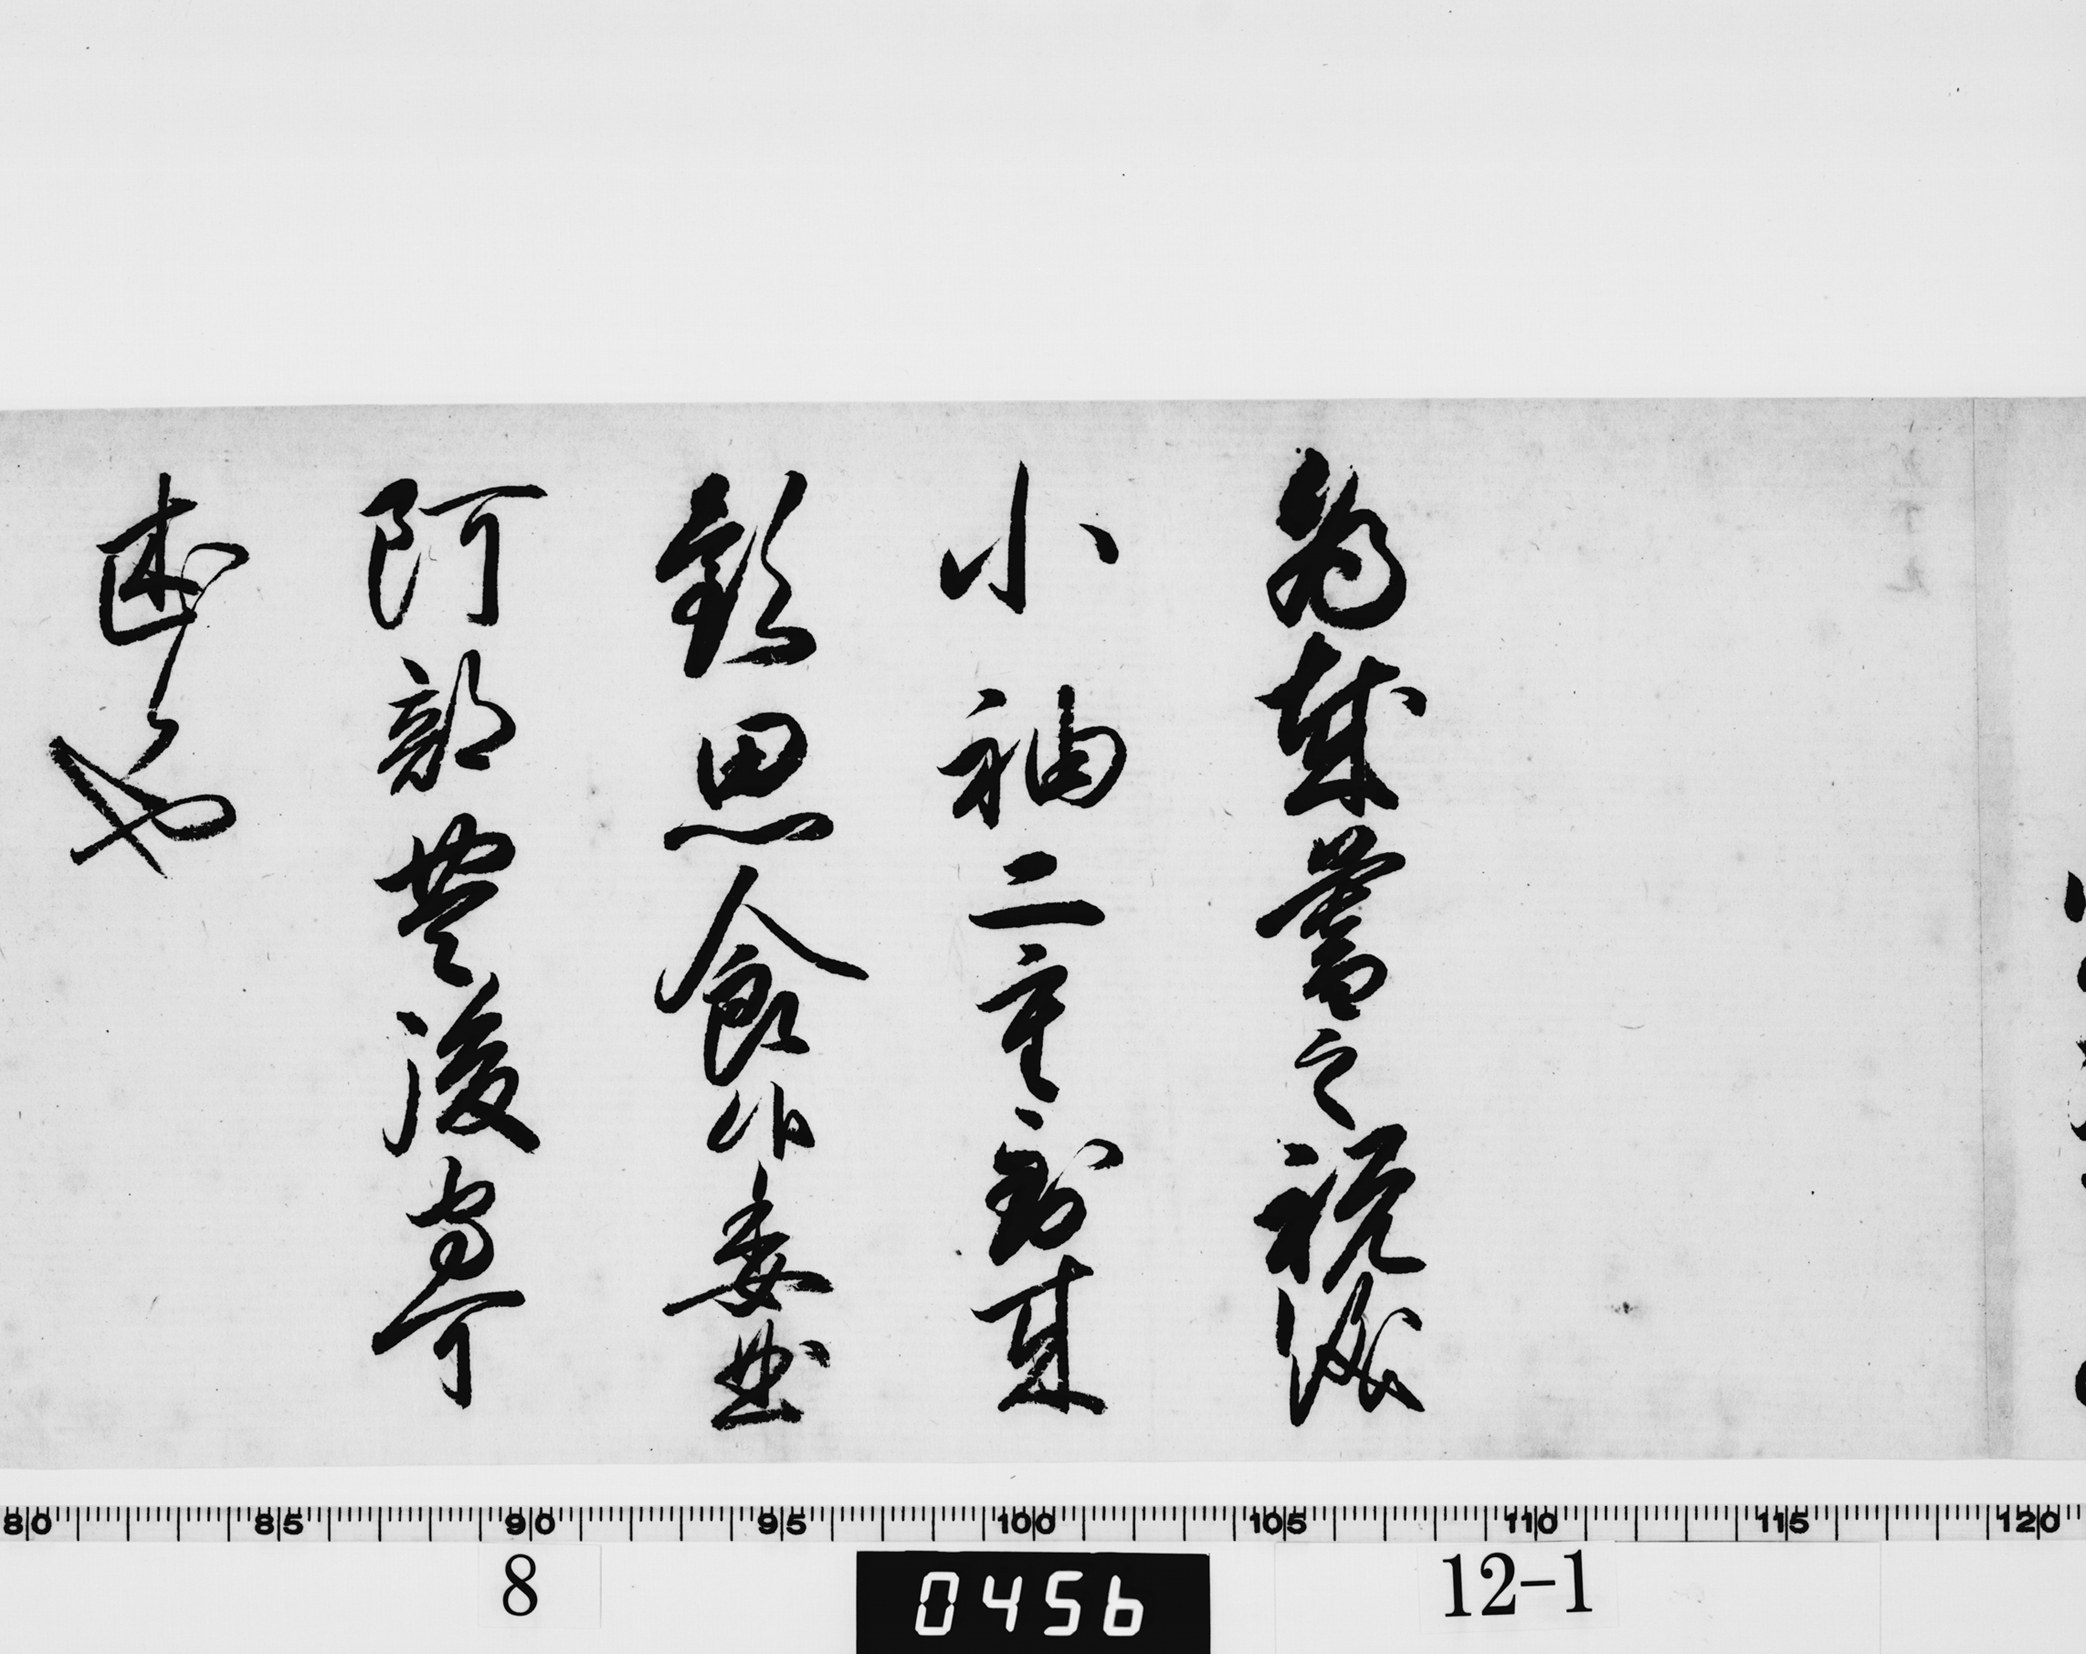 為歳暮之祝儀
小袖二重到来
歓思食候委曲
阿部豊後守可
述候也
80 85 90 95 100 105 110 115 120
8
0456
12-1